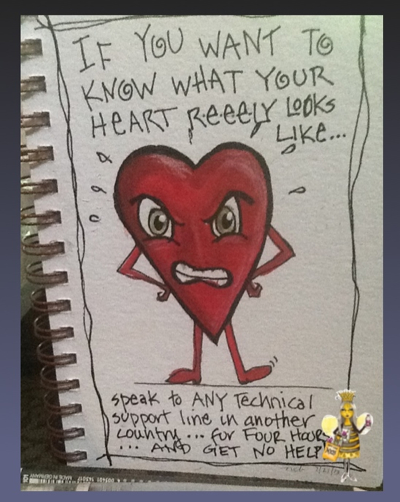 IF YOU WANT TO
KNOW WHAT YOUR
HEART REEELY LOOKS
LIKE...
speak to ANY Technical
support line in another
country... for FOUR HOURS
... AND GET NO HELP